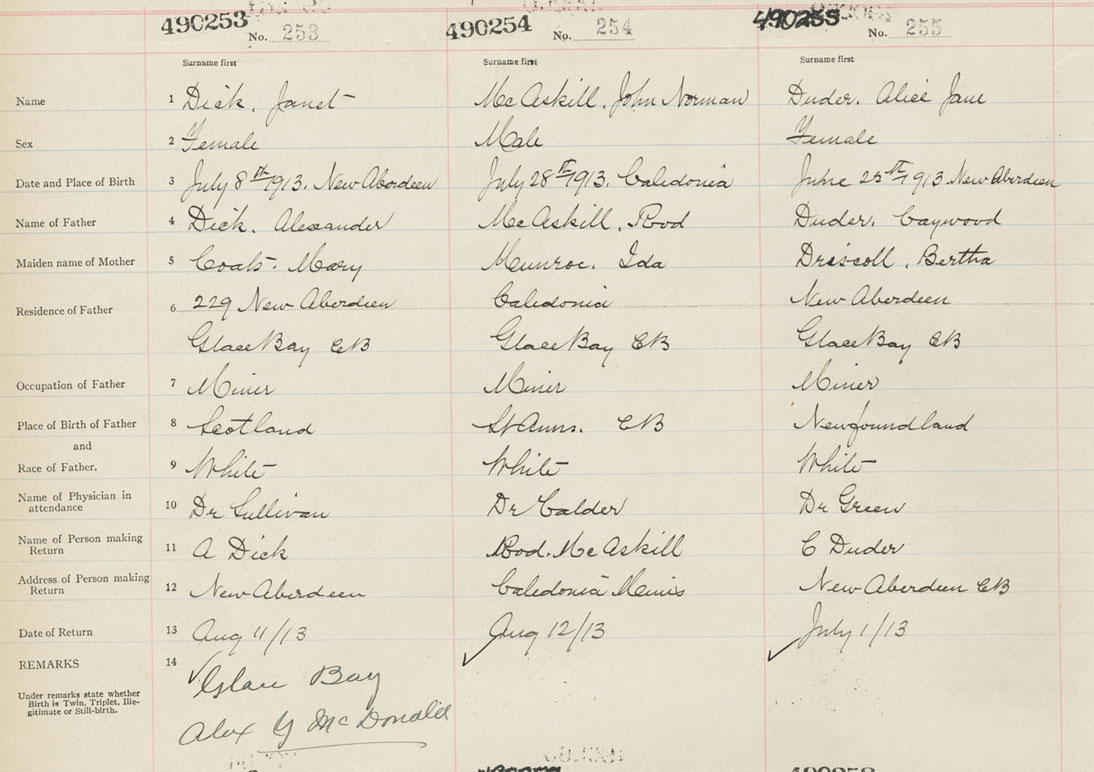 490253 No. 253 490254 No. 254 490255 No. 255
Surname first Surname first Surname first
Name 1 Dick, Janet McAskill, John Norman Duder, Alice Jane
Sex 2 Female Male Female
Date and Place of Birth 3 July 8th 1913. New Aberdeen July 28th 1913. Caledonia June 25th 1913 New Aberdeen
Name of Father 4 Dick, Alexander McAskill, Rod Duder, Caywood
Maiden name of Mother 5 Coats. Mary Munroe. Ida Driscoll, Bertha
Residence of Father 6 229 New Aberdeen Caledonia New Aberdeen
Glace Bay CB Glace Bay CB Glace Bay CB
Occupation of Father 7 Miner Miner Miner
Place of Birth of Father 8 Scotland St Anns. CB Newfoundland
and
Race of Father. 9 White White White
Name of Physician in attendance 10 Dr Sullivan Dr Calder Dr Green
Name of Person making Return 11 A Dick Rod. McAskill C Duder
Address of Person making Return 12 New Aberdeen Caledonia Mines New Aberdeen CB
Date of Return 13 Aug 11/13 Aug 12/13 July 1/13
REMARKS 14 Glace Bay
Under remarks state whether
Birth is Twin, Triplet, Ille-
gitimate or Still-birth.
Alex McDonald